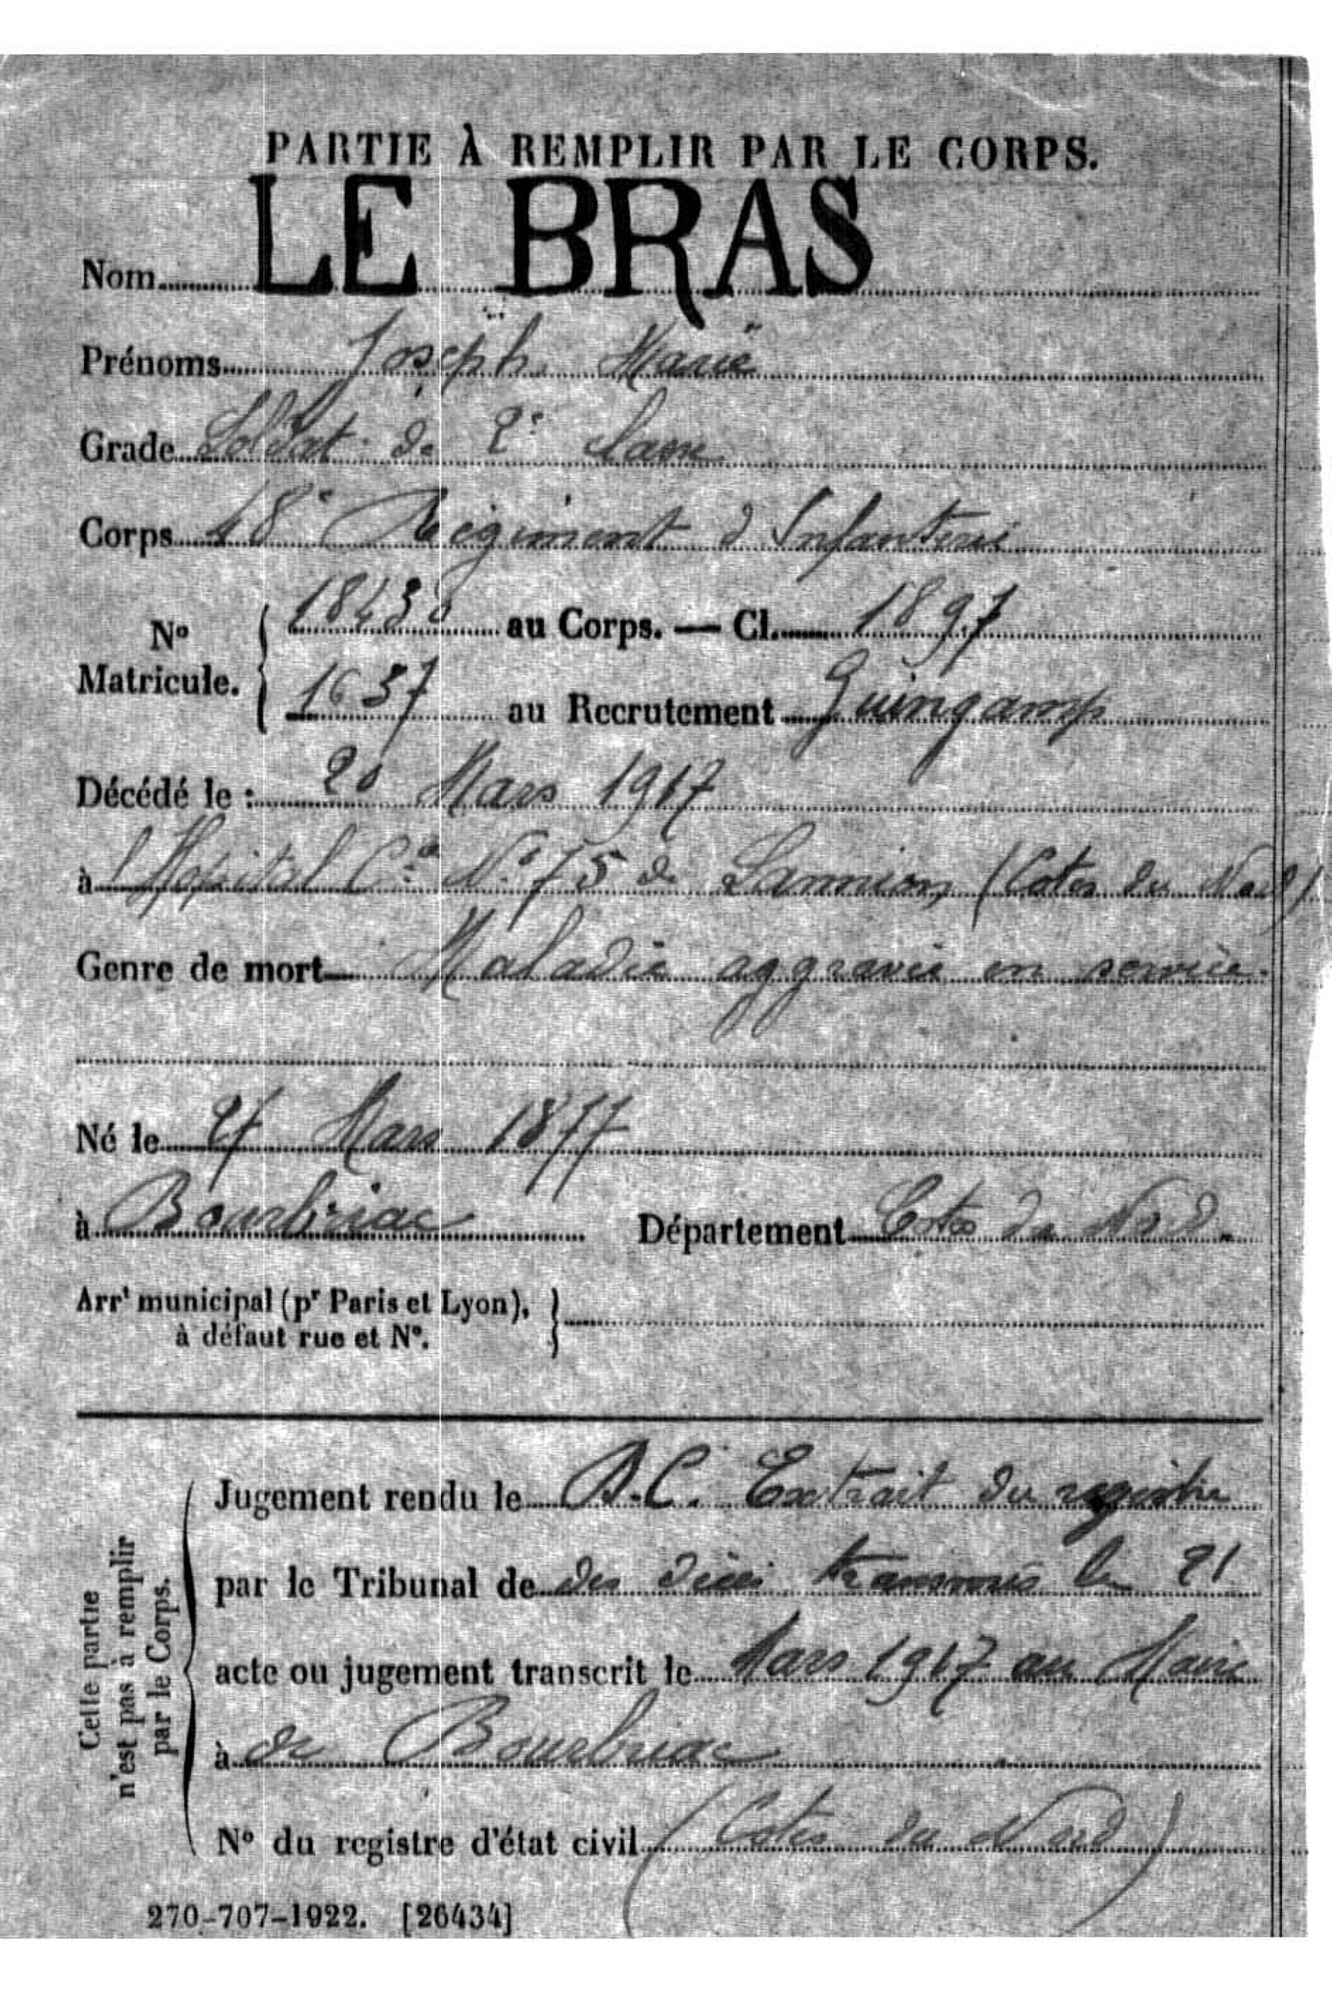 PARTIE À REMPLIR PAR LE CORPS.
Nom LE BRAS
Prénoms Joseph Marie
Grade Soldat de 2e classe
Corps 48e Régiment d'Infanterie
No Matricule. 18430 au Corps. — Cl. 1897
1637 au Recrutement Guingamp
Décédé le : 20 Mars 1917
à l'Hôpital Cre No 75 de Lannion (Cotes du Nord)
Genre de mort Maladie aggravée en service.
Né le Mars 1877
à Bourbriac Département Cotes du Nord.
Arrt municipal (pr Paris et Lyon),
à défaut rue et No.
Cette partie
n'est pas à remplir
par le Corps.
Jugement rendu le B.C. Extrait du registre
par le Tribunal de des décès transmis le 21
acte ou jugement transcrit le Mars 1917 au Maire
à de Bourbriac
No du registre d'état civil (Cotes du Nord)
270-707-1922. [26434]